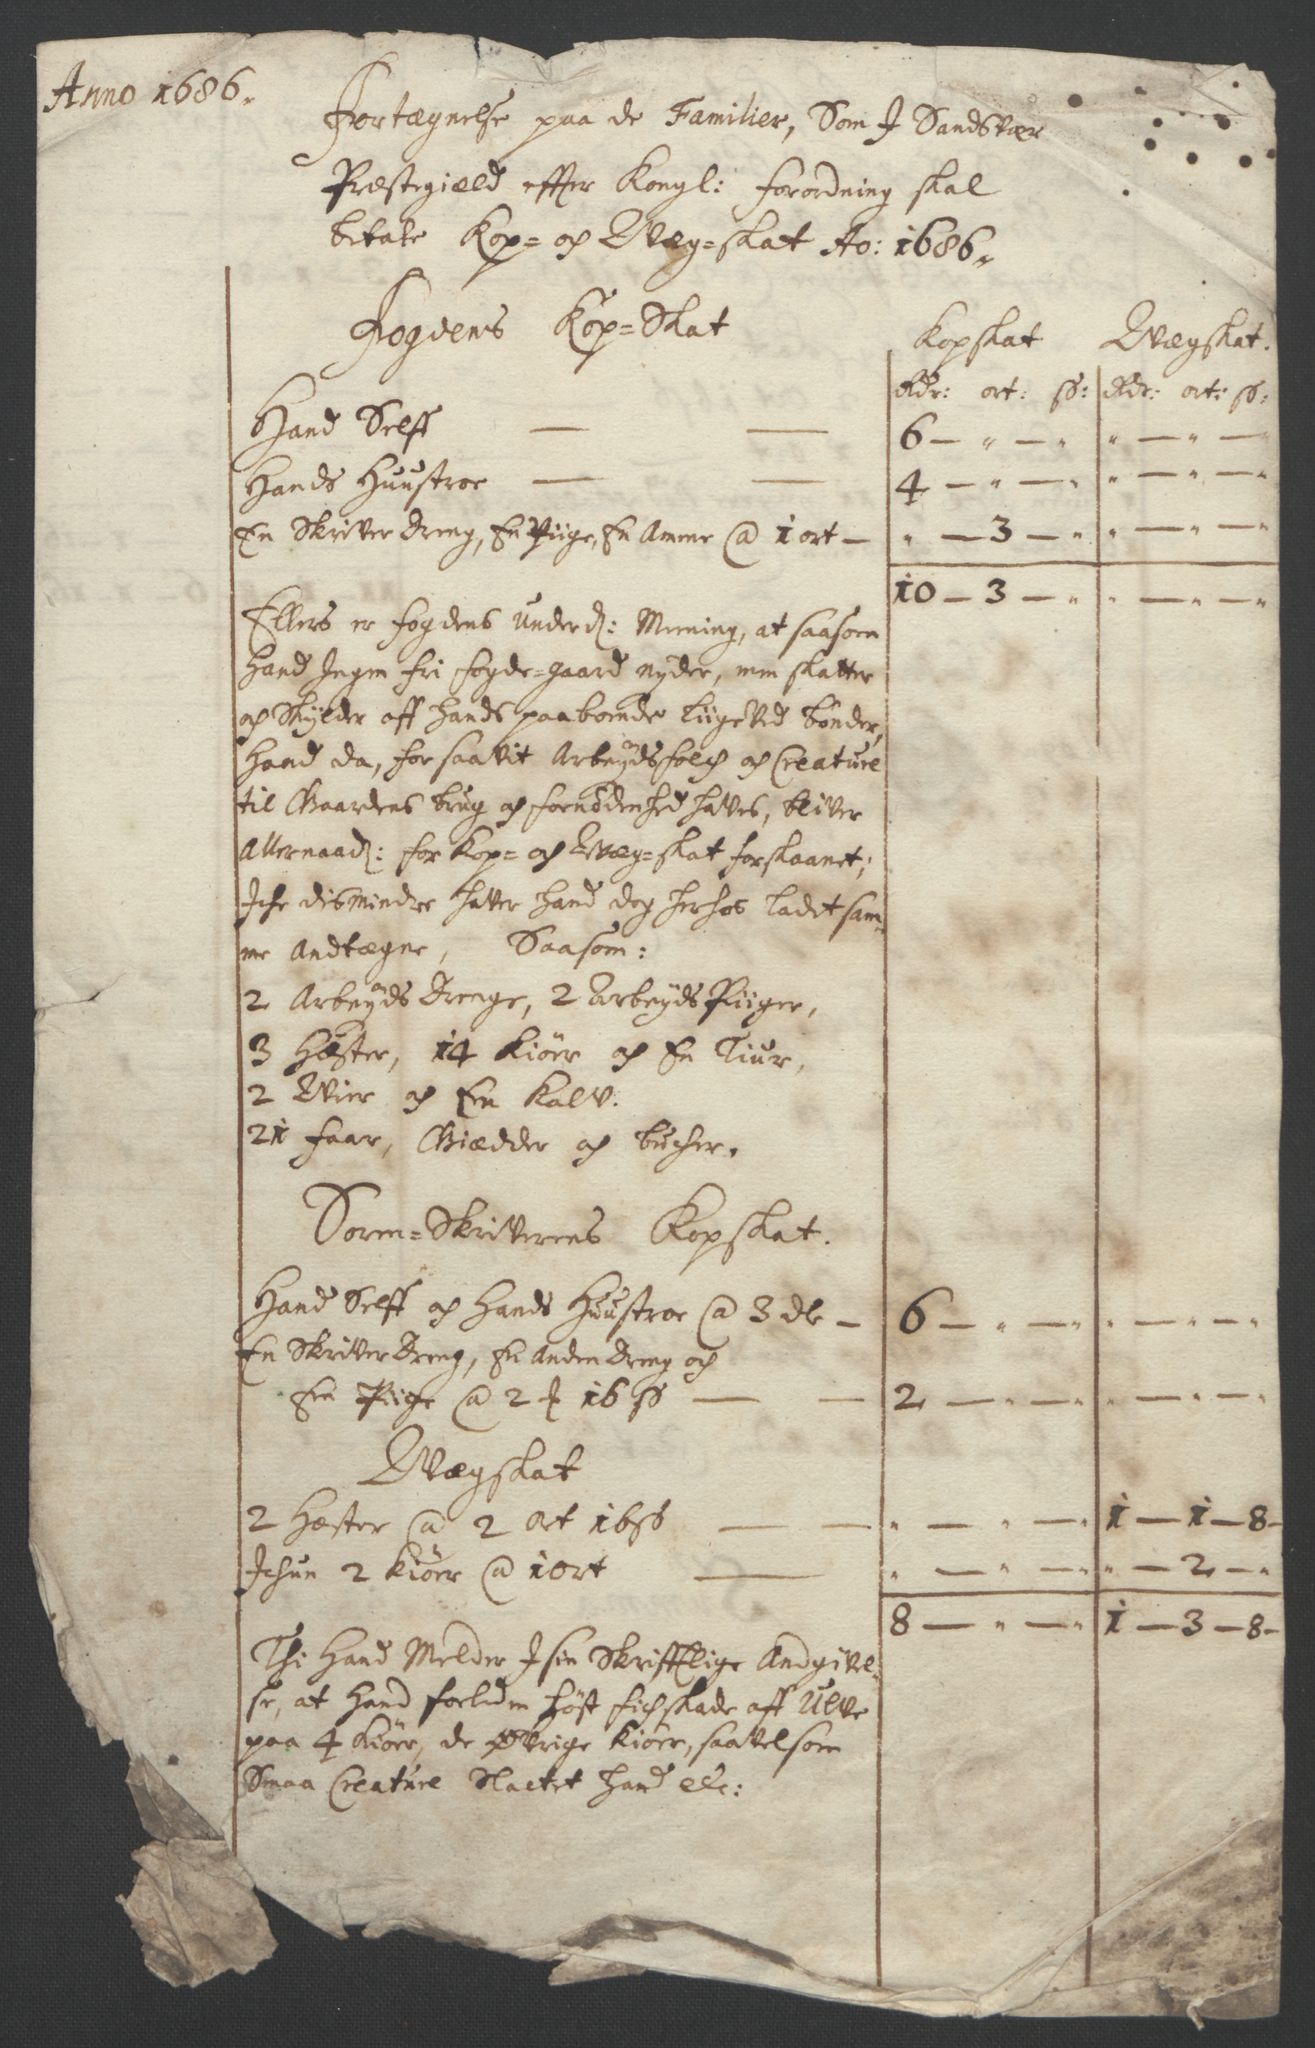 Anno 1686.
Fortægnelse paa de Familier, Som J Sandsvær
Præstegield effter Kongl: forordning skal
betale Kop= och Qvæg=skat Ao: 1686.
Fogdens Kop=Skat
Kopskat Qvægskat.
Rdr: ort: ss: Rdr: ort: ss:
Hand Selff — — 6 — " — " " — " — "
Hands Huustroe — — 4 — " — " " — " — "
En Skriver dreng, En Piige, En Amme @ 1 ort — " — 3 — " " — " — "
10 — 3 — " " — " — "
Ellers er fogdens underd: Meening, at saasom
Hand Ingen fri fogde=gaard nyder, men skatter
och Skylder aff hands paaboende liige ved bønder,
Hand da, for saavit Arbeydsfolch och Creature
til Gaardens brug och fornødenhed haves, bliver
Allernaad: for Kop= och Qvæg=skat forskaanet;
Iche dismindre haver hand dog herhos ladet sam-
me Andtægne, Saasom:
2 Arbeyds drenge, 2 Arbeyds Piiger,
3 Hæster, 14 Kiøer och En Tiur,
2 Qvier och Een Kalv.
21 faar, Giædder och bucher.
Soren=Skriverens Kopskat.
Hand Selff och Hands Huustroe @ 3 dlr — 6 — " — " " — " — "
En Skriver dreng, En Anden dreng och
Een Piige @ 2 # 16 ss — — 2 — " — " " — " — "
Qvægskat
2 Hæster @ 2 ort 16 ss — — " — " — " 1 — 1 — 8 -
Ichun 2 Kiøer @ 1 ort — " — " — " " — 2 — "
8 — " — " 1 — 3 — 8 -
Thi Hand Melder J sin Skrifftlige Andgivel-
se, at Hand forleden høst fich skade aff Ulve
paa 4 Kiøer, de øvrige Kiøer, saavelsom
Smaa Creature Slactet hand etc: